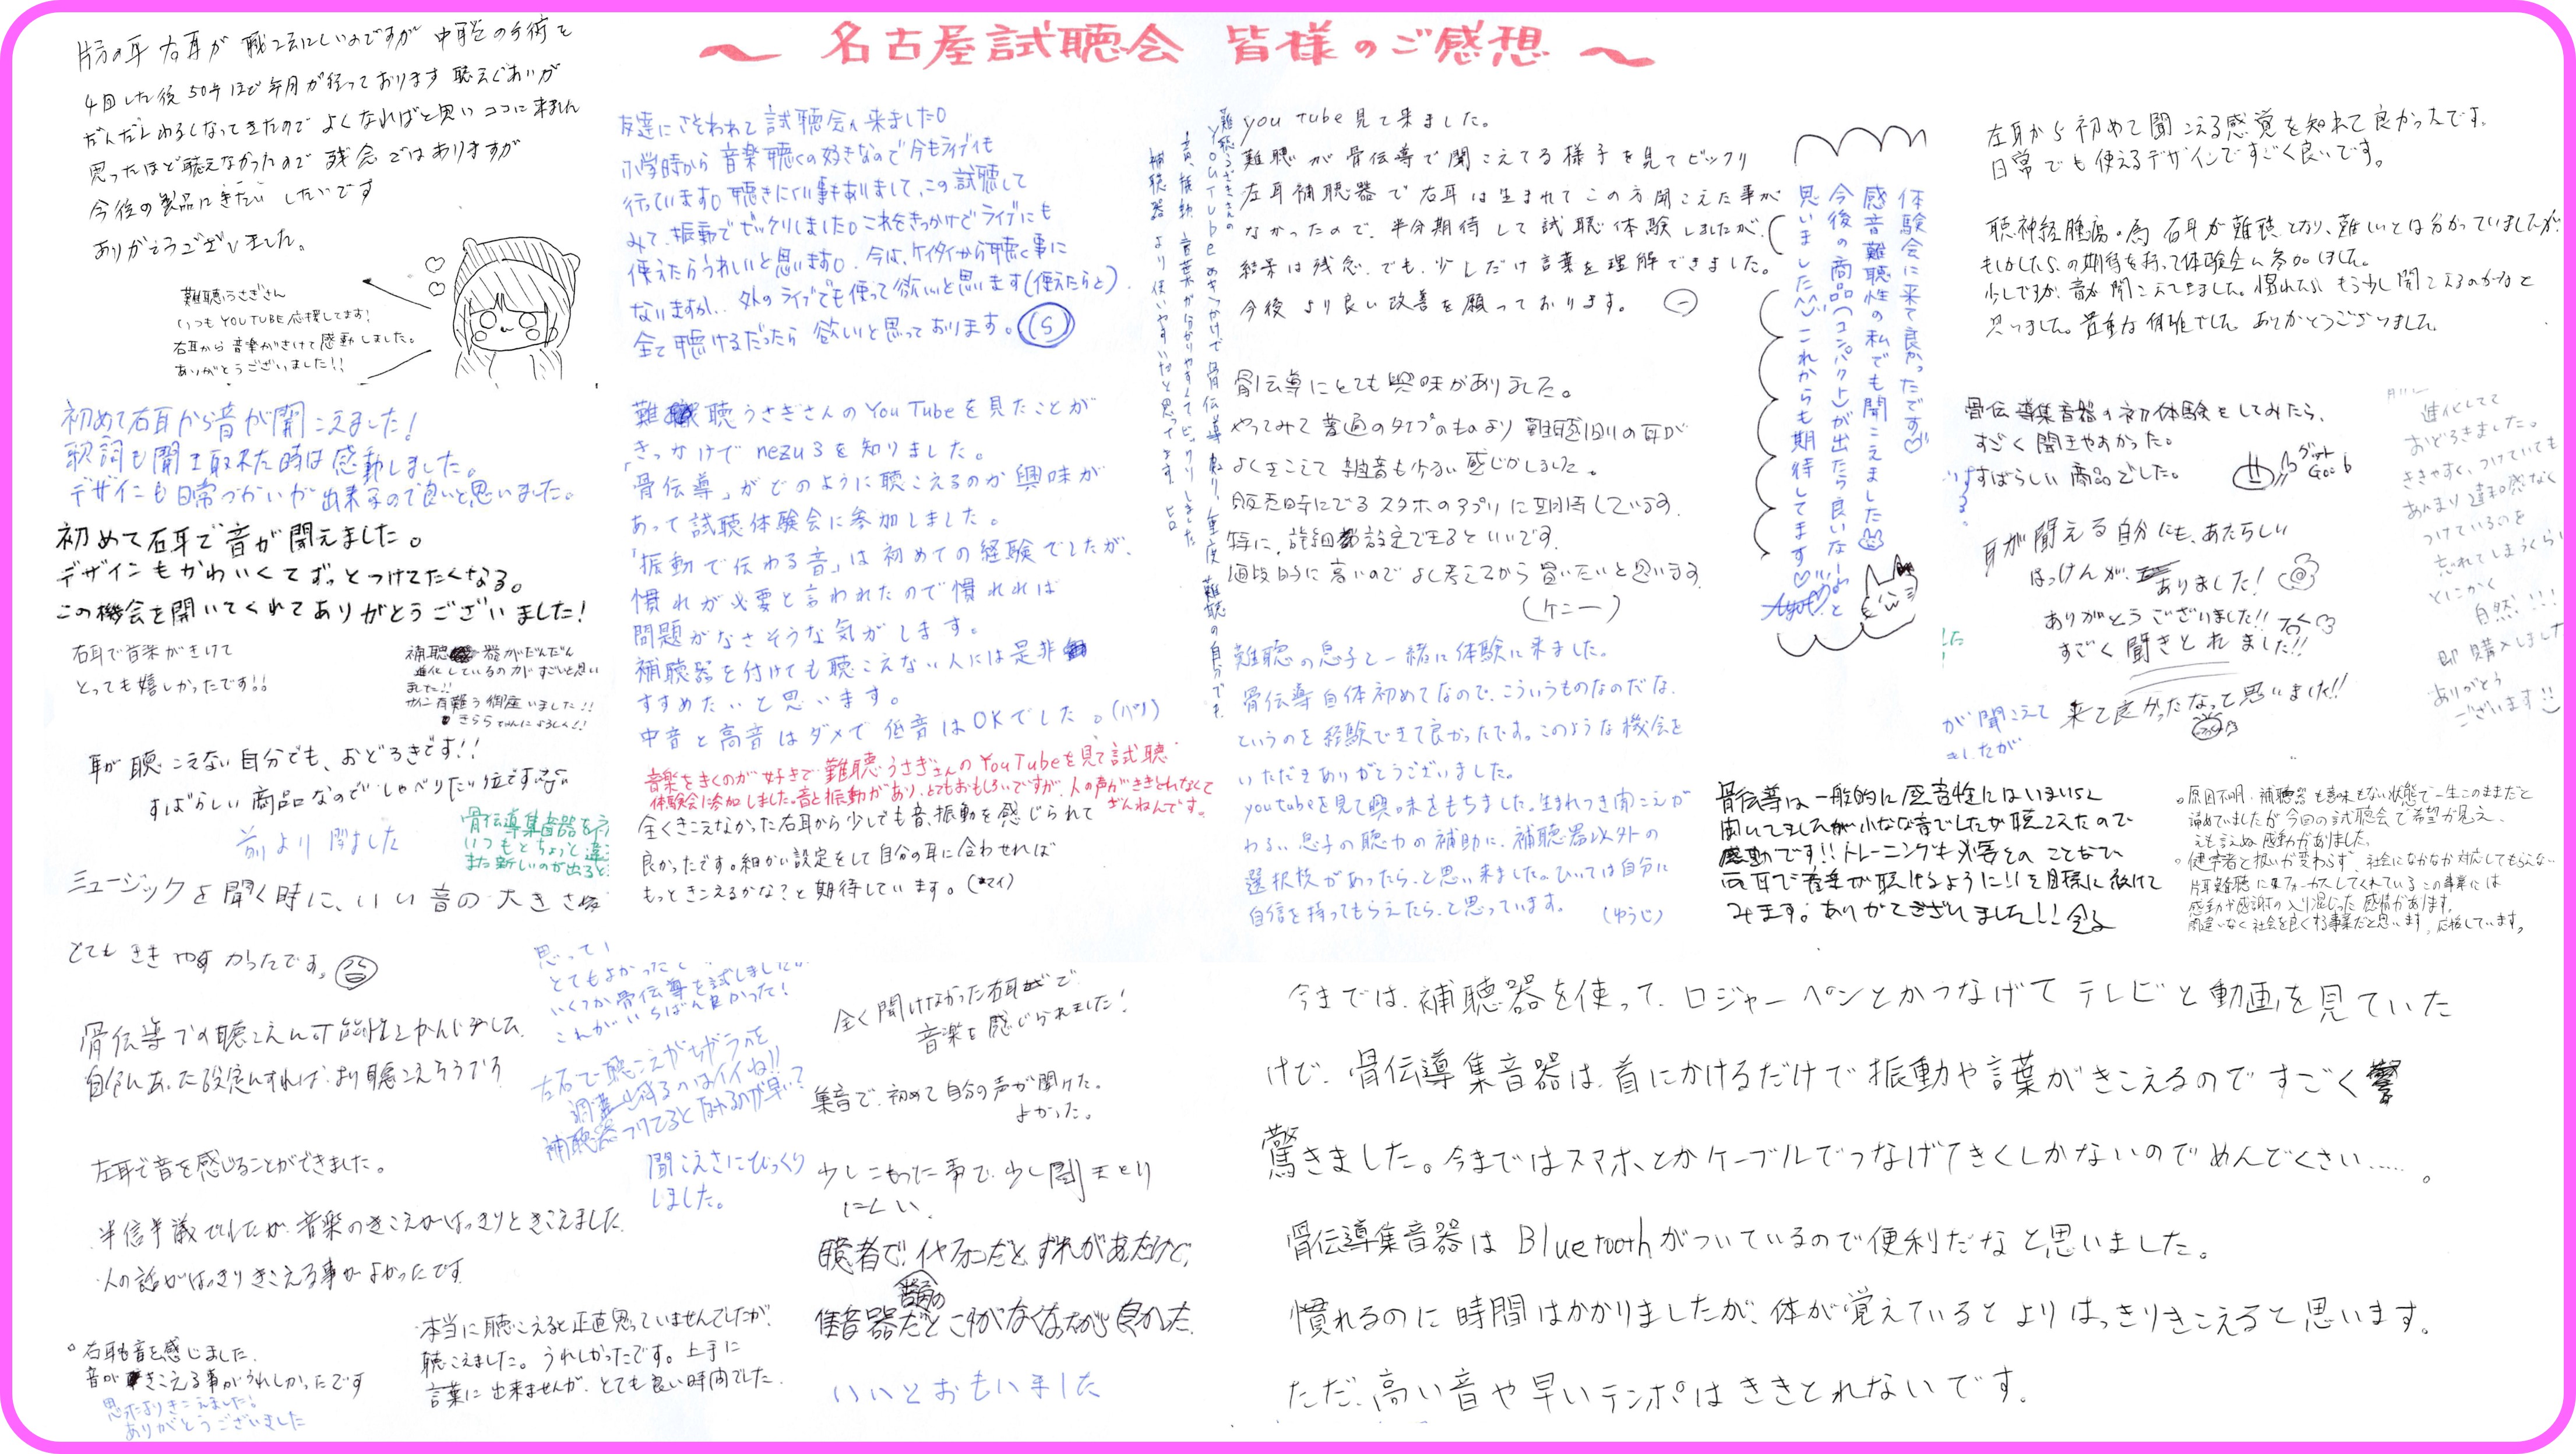 ～ 名古屋試聴会 皆様のご感想 ～
片方の耳 右耳が 聴こえにしいのですが 中耳炎の手術を
4回した後 50年ほど年月が経っております 聴えぐあいが
だんだんわるくなってきたので よくなればと思い ココに来ました
思ったほど聴えなかったので 残念ではありますが
今後の製品にきたい したいです
ありがとうございました。
難聴うさぎさん
いつもYOUTUBE応援してます!
右耳から音楽がきけて感動しました。
ありがとうございました!!
初めて右耳から音が聞こえました!
歌詞も聞き取れた時は感動しました。
デザインも日常づかいが出来るので良いと思いました。
初めて右耳で音が聞えました。
デザインもかわいくてずっとつけてたくなる。
この機会を開いてくれてありがとうございました!
右耳で音楽がきけて
とっても嬉しかったです!!
補聴器がだんだん
進化しているのがすごいと思い
ました!!
有難う御座いました!!
耳が聴こえない自分でも、おどろきです!!
すばらしい商品なので しゃべりたい位です
前より聞ました
骨伝導集音器を
いつもとちょっと違
また新しいのが出ると
ミュージックを聞く時に、いい音の大きさ
とても ききやすかったです。
骨伝導での聴こえに可能性をかんじました
自分にあった設定にすれば、より聴こえそうです
左耳で音を感じることができました。
半信半議でしたが、音楽のきこえがはっきりときこえました
人の話がはっきりきこえる事がよかったです
。右耳も音を感じました。
音がきこえる事がうれしかったです
思ったよりきこえました。
ありがとうございました
本当に聴こえると正直思っていませんでしたが、
聴こえました。うれしかったです。上手に
言葉に出来ませんが、とても良い時間でした。
友達にさとわれて試聴会へ来ました。
小学時から音楽聴くの好きなので今もライブも
行っています。聴きにくい事もありまして、この試聴して
みて、振動でビックリしました。これをきっかけでライブにも
使えたらうれしいと思います。今は、ケイタイから聴く事に
ないますが、外のライブでも使って欲いと思います(使えたらと)
全て聴けるだったら 欲いと思っております。(S)
難聴うさぎさんのYouTubeを見たことが
きっかけで nezu3を知りました。
「骨伝導」がどのように聴こえるのか興味が
あって試聴体験会に参加しました。
「振動で伝わる音」は初めての経験でしたが、
慣れが必要と言われたので慣れれば
問題がなさそうな気がします。
補聴器を付けても聴こえない人には是非
すすめたいと思います。
中音と高音はダメで低音はOKでした。(パリ)
音楽をきくのが好きで難聴うさぎさんのYouTubeを見て試聴
体験会に参加しました。音と振動があり、とてもおもしろいですが、人の声がききとれなくて
ざんねんです。
全くきこえなかった右耳から少しでも音、振動を感じられて
良かったです。細かい設定をして自分の耳に合わせれば
もっときこえるかな?と期待しています。(マイ)
思ってい
とてもよかった
いくつか骨伝導を試しました
これがいちばん良かった!
左右で聴こえがちがうのを
調整出来るのはイイね!!
補聴器つけてるとなれるのが早い?
聞こえさにびっくり
しました。
全く聞けなかった右耳で
音楽を感じられました!
集音で、初めて自分の声が聞けた。
よかった。
少しこもった事で、少し聞きとり
にくい、
聴者で、イヤフォンだと、ずれがあったけど、
集音器だと これがなくなったから 良かった
いいとおもいました
難聴うさぎさんのYOUTUBEがきっかけで骨伝導を知り、重度難聴の自分でも、
音、振動、言葉が分かりやすくてビックリしました
補聴器より使いやすいだと思ってます。ヒロ
you tube見て来ました。
難聴が骨伝導で聞こえてる様子を見てビックリ
左耳補聴器で右耳は生まれてこの方聞こえた事が
なかったので、半分期待して試聴体験しましたが、
結果は残念、でも、少しだけ言葉を理解できました。
今後より良い改善を願っております。
骨伝導にとても興味がありました。
やってみて普通のタイプのものより難聴側の耳が
よくきこえて雑音も少ない感じがしました。
販売時にでるスタホのアプリに期待しています。
特に、詳細設定できるといいです。
値段的に高いのでよく考えてから買いたいと思います
(ケニー)
難聴の息子と一緒に体験に来ました。
骨伝導自体初めてなので、こういうものなのだな、
というのを経験できて良かったです。このような機会を
いただきありがとうございました。
youtubeを見て興味をもちました。生まれつき聞こえが
わるい息子の聴力の補助に、補聴器以外の
選択技があったら、と思い来ました。ひいては自分に
自信を持ってもらえたら、と思っています。(ゆうじ)
体験会に来て良かったです♡
感音難聴性の私でも聞こえました
今後の商品(コンパクト)が出たら良いなーと
思いました^^これからも期待してます♡
左耳から初めて聞こえる感覚を知れて良かったです。
日常でも使えるデザインですごく良いです。
聴神経腫瘍の為 右耳が難聴となり、難しいとは分かっていましたが、
もしかしたら、の期待を持って体験会に参加しました。
少しですが、音が聞こえてきました。慣れたら、もう少し聞こえるのかなと
思いました。貴重な体験でした。ありがとうございました。
骨伝導集音器の初体験をしてみたら、
すごく聞きやすかった。
すばらしい商品でした。
グット
Good
進化してて
おどろきました。
ききやすく、つけていても
あんまり違和感なく
つけているのを
忘れてしまうくらい
とにかく
自然!!!
即購入しました
ありがとう
ございます!!
耳が聞える自分にも、あたらしい
はっけんが、ありました!
ありがとうございました!!
すごく聞きとれました!!
来て良かったなって思いました!!
が聞こえて
ましたが
骨伝導は一般的に感音性にはいまいちと
聞いてましたが小なな音でしたが聴こえたので
感動です!!トレーニングも必要とのことなので
両耳で音楽が聴けるように!!を目標に続けて
みます。ありがとうございました!!
。原因不明・補聴器も意味もない状態で一生このままだと
諦めていましたが今回の試聴会で希望が見え、
えも言えぬ感動がありました。
。健常者と扱いが変わらず、社会になかなか対応してもらえない
片耳難聴にフォーカスしてくれているこの事業には
感動や感謝の入り混じった感情があります。
間違いなく社会を良くする事業だと思います。応援しています。
今までは、補聴器を使って、ロジャーペンとかつなげてテレビと動画を見ていた
けど、骨伝導集音器は、首にかけるだけで振動や言葉がきこえるのですごく
驚きました。今まではスマホとかケーブルでつなげてきくしかないのでめんどくさい.....。
骨伝導集音器はBluetoothがついているので便利だなと思いました。
慣れるのに時間はかかりましたが、体が覚えているとよりはっきりきこえると思います。
ただ、高い音や早いテンポはききとれないです。